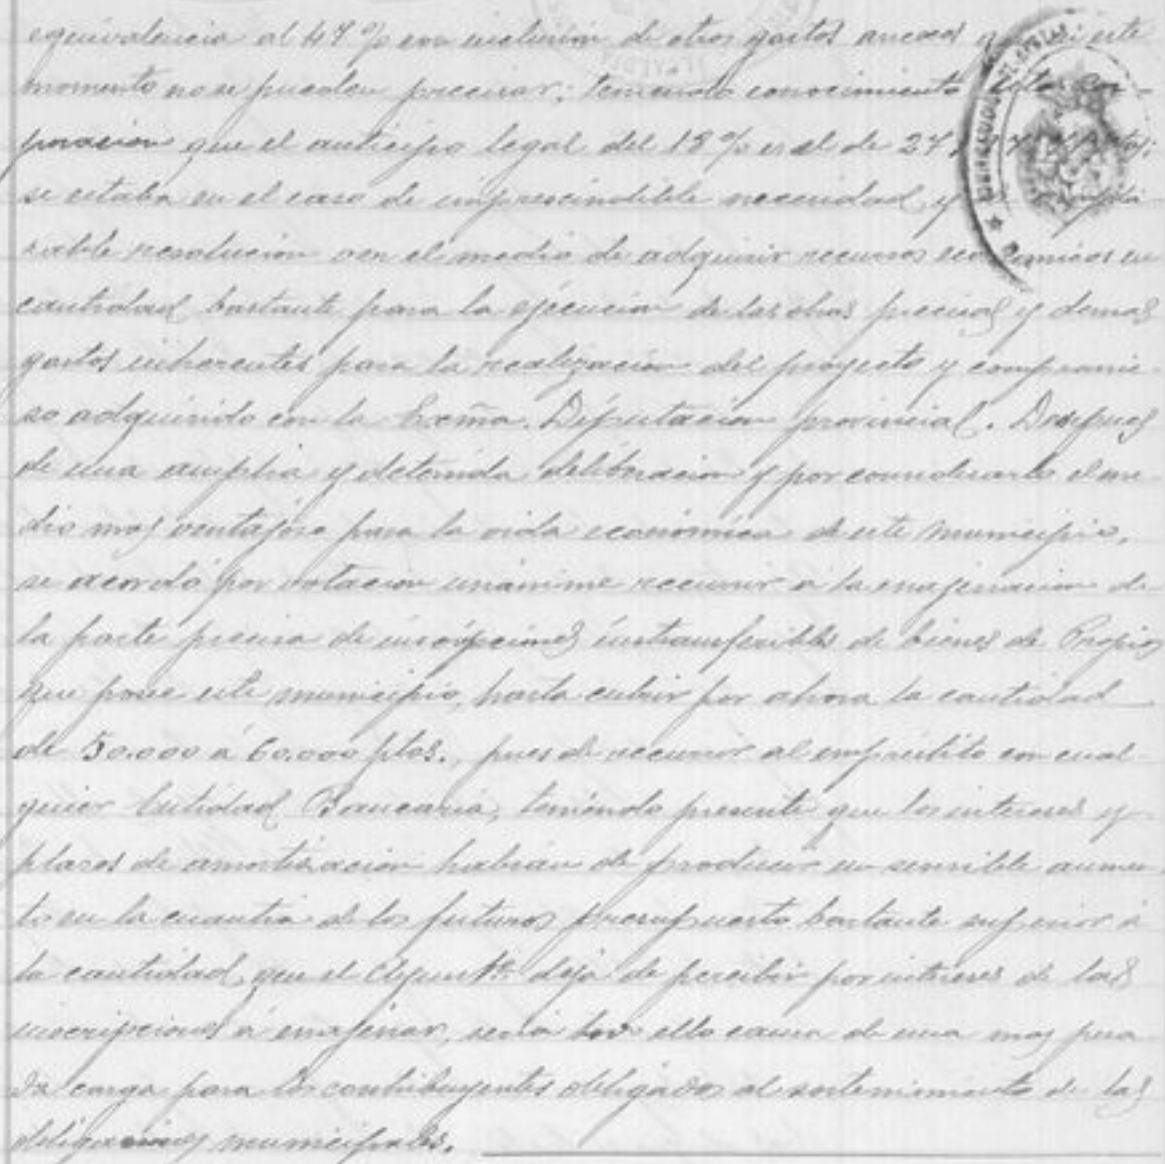 equivalencia al 47 % con inclusión de otros gastos anexos que en este
momento no se pueden precisar; teniendo conocimiento esta Cor-
poracion que el anticipo legal del 18 % es el de 27
se estaba en el caso de imprescindible necesidad y
rable resolución ver el medio de adquirir recursos económicos en
cantidad bastante para la ejecución de las obras precisas y demas
gastos inherentes para la realizacion del proyecto y compromi-
so adquirido con la Excma. Diputacion provincial. Despues
de una amplia y detenida deliberacion y por considerarlo el me-
dio mas ventajoso para la vida económica de este municipio,
se acordó por votacion unánime recurrir a la enajenacion de
la parte precisa de inscripciones intransferibles de bienes de Propios
que posee este municipio, hasta cubrir por ahora la cantidad
de 50.000 á 60.000 ptas., pues de recurrir al empréstito con cual-
quier Entidad Bancaria, teniendo presente que los intereses y
plazos de amortización habrian de producir un sensible aumen-
to en la cuantia de los futuros presupuesto bastante superior á
la cantidad que el Ayuntº deja de percibir por intereses de las
inscripciones á enajenar, seria por ello causa de una mas pesa-
da carga para los contribuyentes obligados al sostenimiento de las
obligaciones municipales.